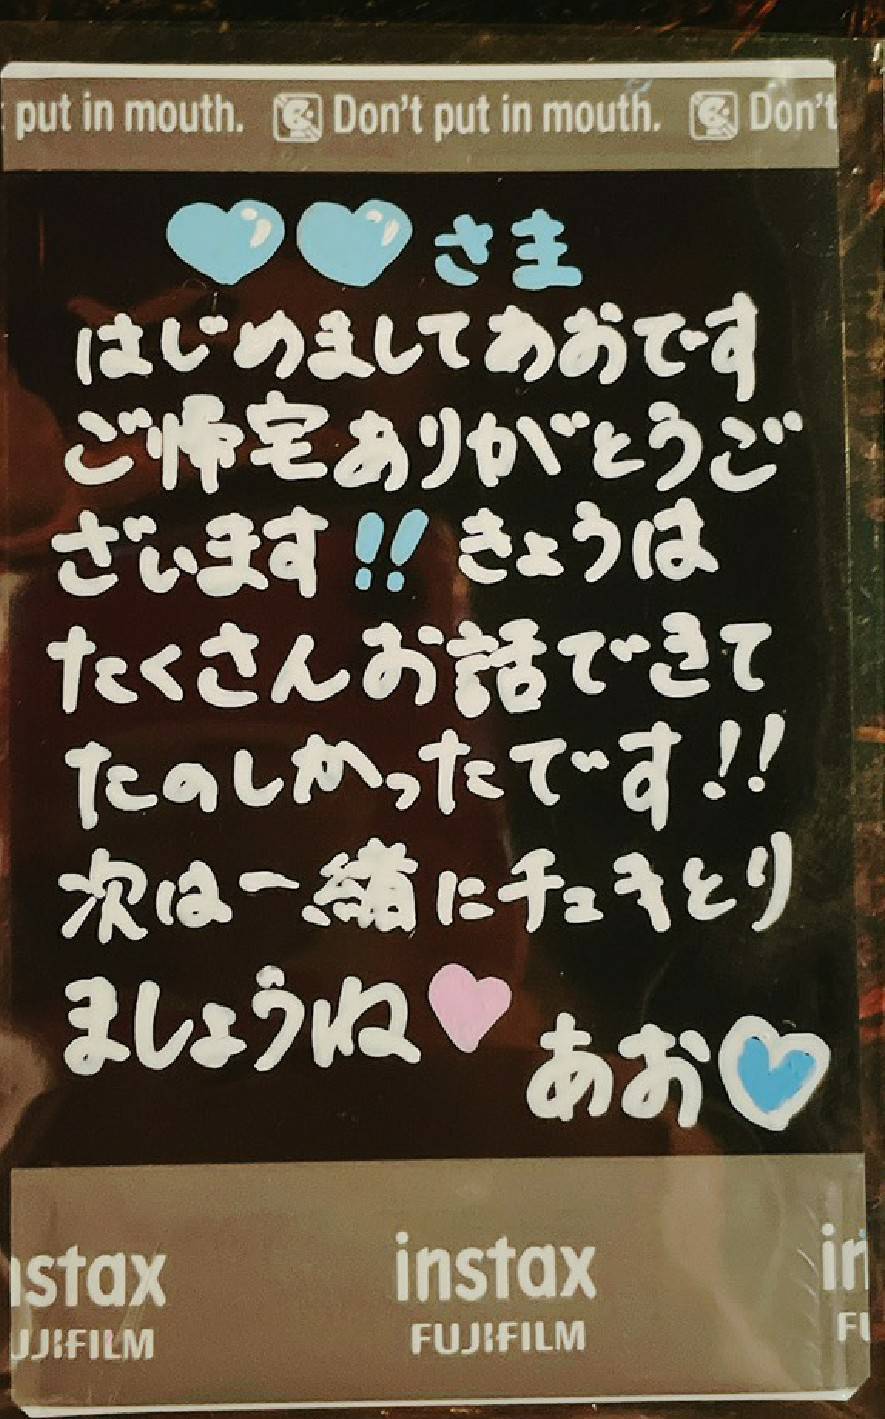 put in mouth. Don't put in mouth. Don't
さま
はじめましてあおです
ご帰宅ありがとうご
ざいます!! きょうは
たくさんお話できて
たのしかったです!!
次は一緒にチェキとり
ましょうね
あお
instax instax in
FUJIFILM FUJIFILM FU